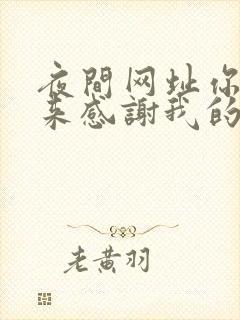 夜間网址你
来感謝我的
老黄羽